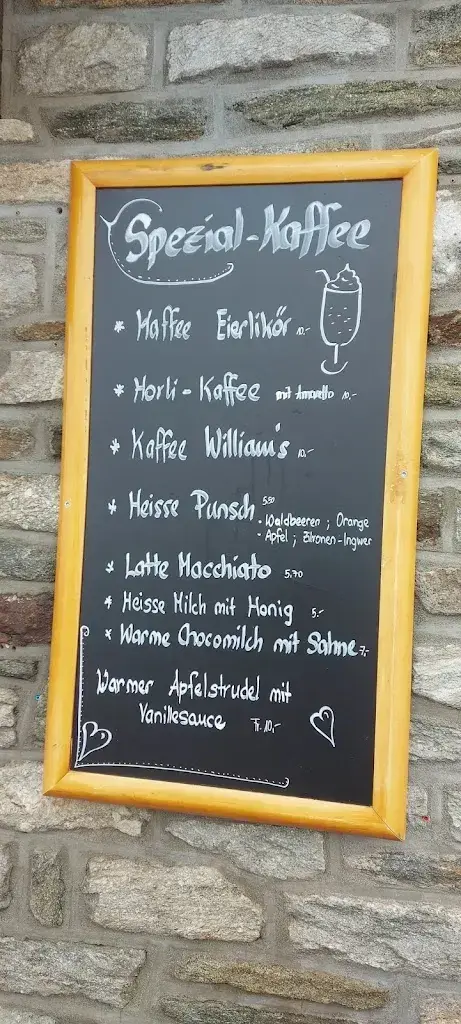 Spezial-Kaffee
* Kaffee Eierlikör 10.-
* Horli-Kaffee mit Amaretto 10.-
* Kaffee William's 10.-
* Heisse Punsch 5.50
- Waldbeeren ; Orange
- Apfel ; Zitronen-Ingwer
* Latte Macchiato 5.70
* Heisse Milch mit Honig 5.-
* Warme Chocomilch mit Sahne 7.-
Warmer Apfelstrudel mit
Vanillesauce Fr. 10.-